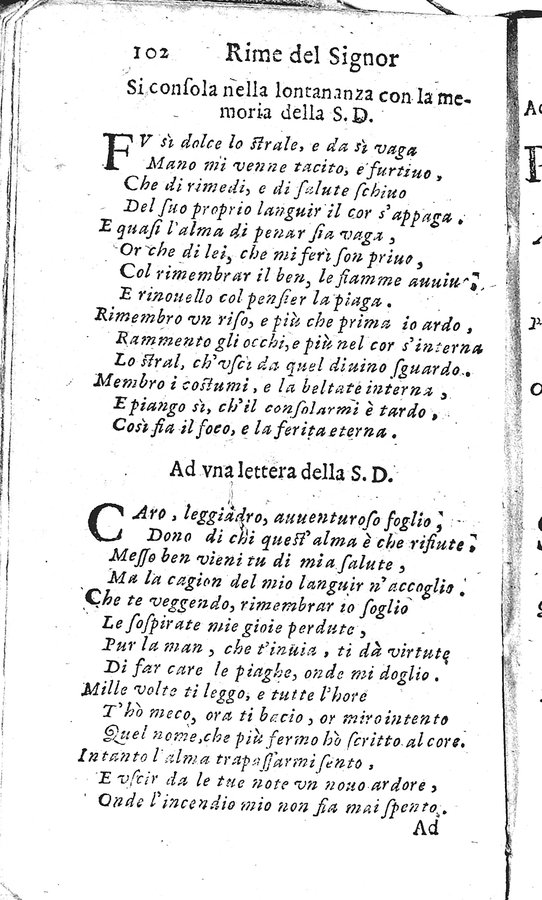 102 Rime del Signor
Si conſola nella lontananza con la me-
moria della S. D.
FV sì dolce lo ſtrale, e da sì vaga
Mano mi venne tacito, e furtiuo,
Che di rimedi, e di ſalute ſchiuo
Del ſuo proprio languir il cor s'appaga.
E quaſi l'alma di penar ſia vaga,
Or che di lei, che mi ferì ſon priuo,
Col rimembrar il ben, le fiamme auuiuo;
E rinouello col penſier la piaga.
Rimembro vn riſo, e più che prima io ardo,
Rammento gli occhi, e più nel cor s'interna
Lo ſtral, ch'vſcì da quel diuino ſguardo.
Membro i coſtumi, e la beltate interna,
E piango sì, ch'il conſolarmi è tardo,
Così fia il foco, e la ferita eterna.
Ad vna lettera della S. D.
CAro, leggiadro, auuenturoſo foglio;
Dono di chi queſt'alma è che rifiute;
Meſſo ben vieni tu di mia ſalute,
Ma la cagion del mio languir n'accoglio.
Che te veggendo, rimembrar io ſoglio
Le ſoſpirate mie gioie perdute,
Pur la man, che t'inuia, ti dà virtute
Di far care le piaghe, onde mi doglio.
Mille volte ti leggo, e tutte l'hore
T'hò meco, ora ti bacio, or miro intento
Quel nome, che più fermo hò ſcritto al core.
Intanto l'alma trapaſſarmi ſento,
E vſcir da le tue note vn nouo ardore,
Onde l'incendio mio non fia mai ſpento.
Ad